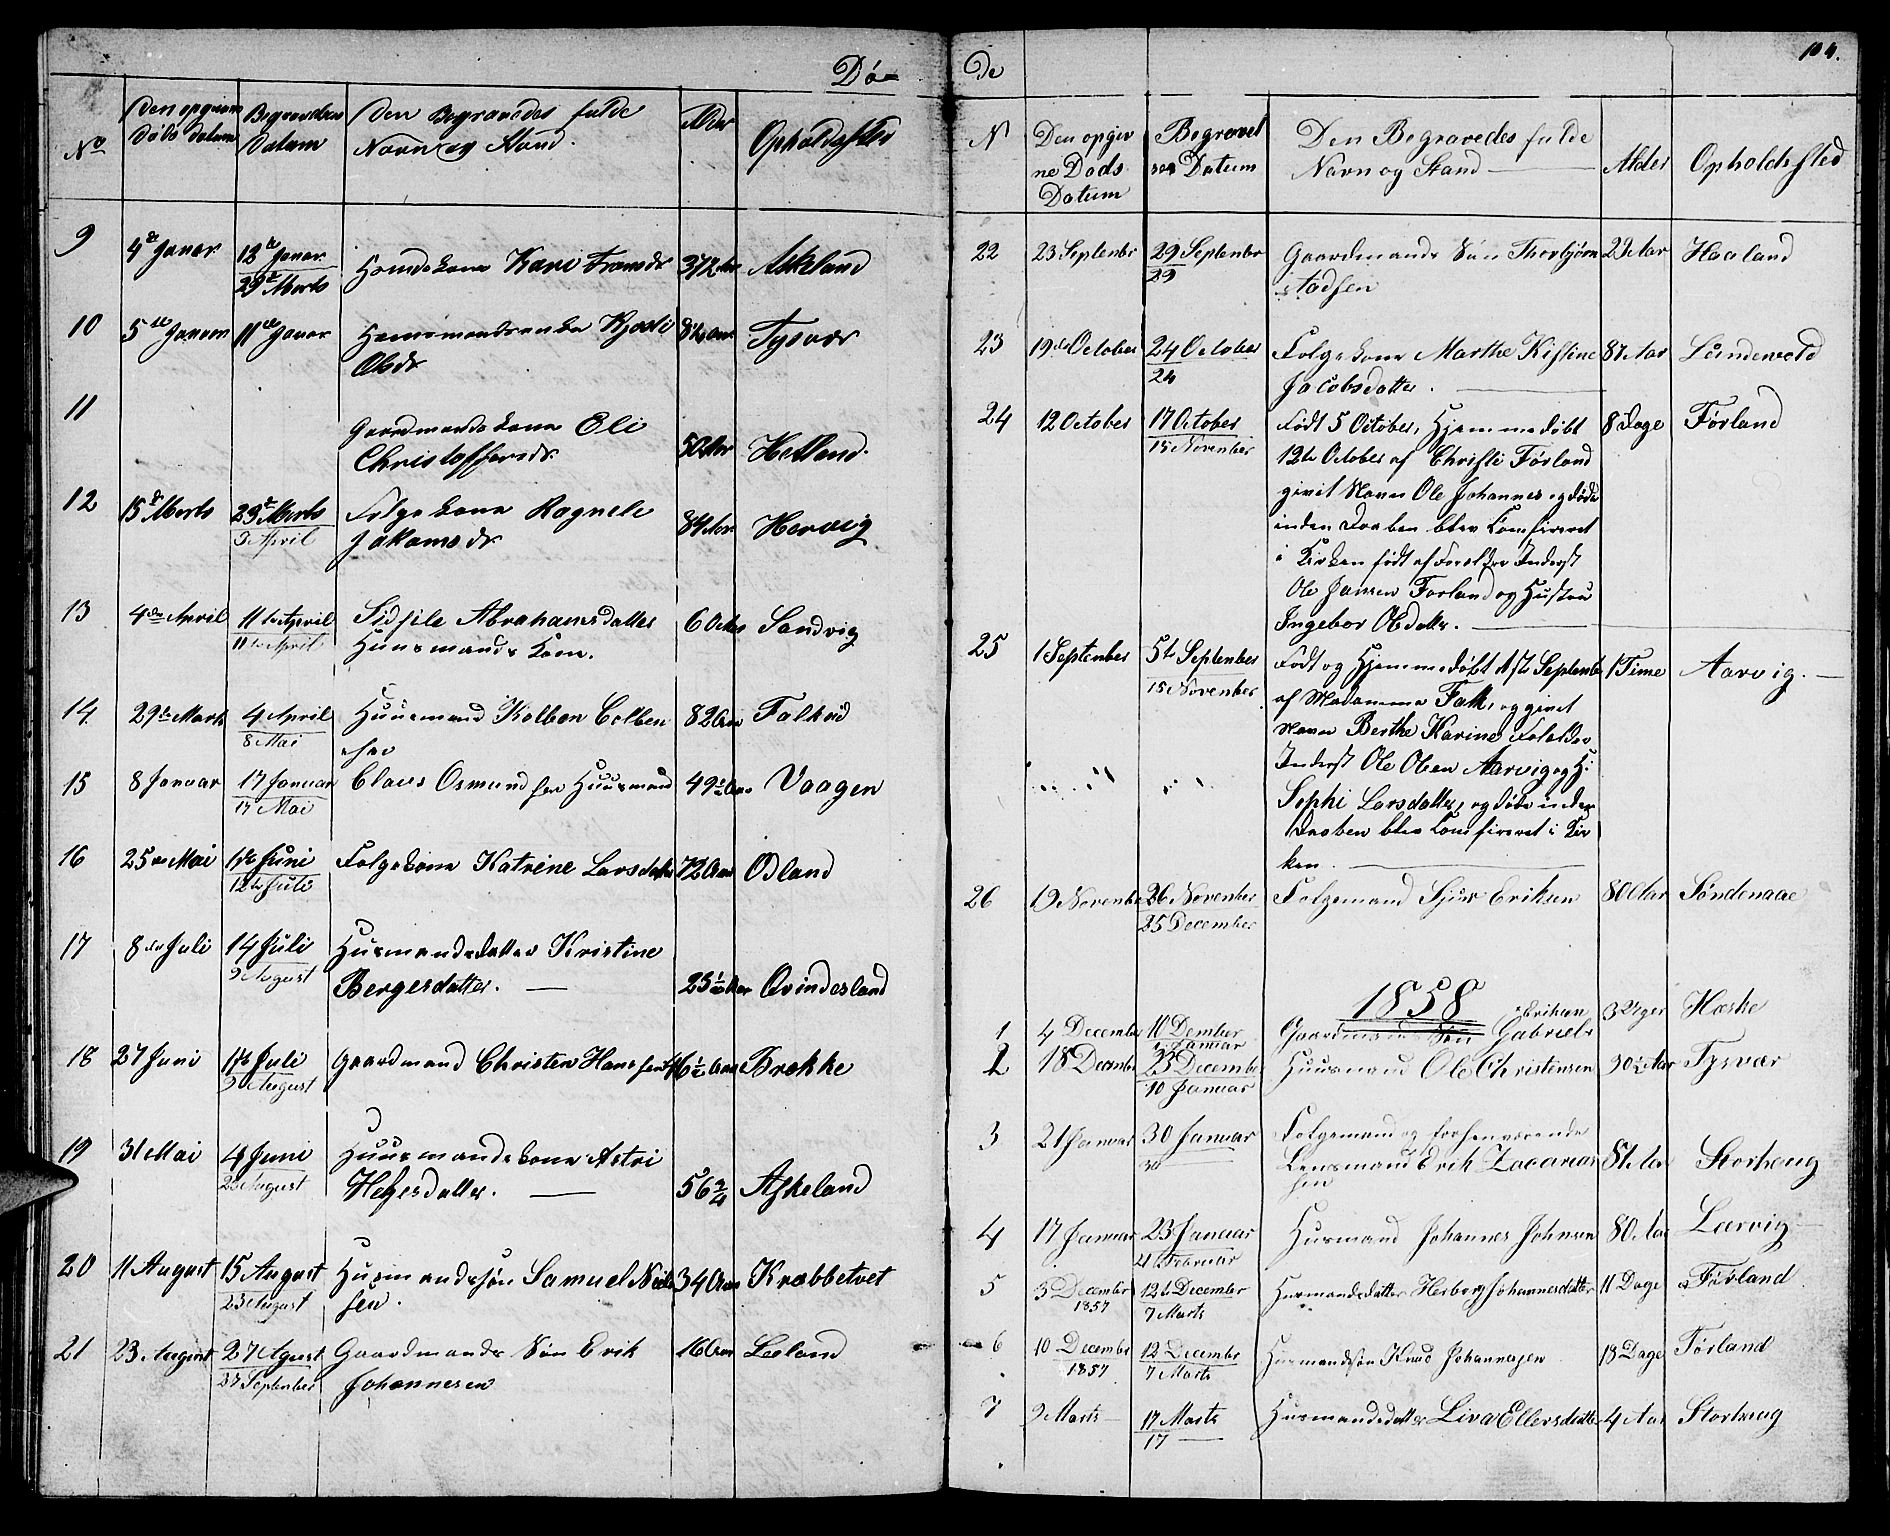 Dø=
No
Den opgivne Døds datum
Begravelses Datum
Den Begravedes fulde Navn og Stand.
Alder
Opholdssted
9 4de Janar 18de Janar Kari 37 1/2 Aar Askeland
29de Marts
10 5te Janar 11te Janar Tysvær
Olsdr
11 Gaardmandskone Eli
Christoffersdr 50 Aar Hetland.
12 15de Marts 29de Marts Folgekone Ragnele
5 April Jakamsdr 84 Aar Hervig
13 4de April 11te April Sidsele Abrahamsdatter 60 Aar Sandvig
11te April Huusmands Kone.
14 29de Marts 4 April Huusmand Kolben Colben 82 Aar Falkeid
8 Mai sen
15 8 Januar 17 Januar Claus Osmundsen Huusmand 49 1/2 Aar Vaagen
17 Mai
16 25de Mai 1ste Juni Folgekone Katrine Larsdatter 72 Aar Odland
12te Juli
17 8de Juli 14 Juli Husmandsdatter Kristine
9 August Bergersdatter. — Qvindesland
18 27 Juni 1ste Juli Gaardmand Christen Hansen 46 1/2 Aar Brekke
9 August
19 31 Mai 4 Juni Huusmandskone Astri
23 August — 56 Askeland
20 11 August 15 August Husmandssøn Samuel Niels 34 Aar Krabbetvet
23 August sen.
21 23 August 27 Agust Gaardmands Søn Erik 16 Aar Leland
27 September Johannesen
De
104.
N
Den opgivne Døds Datum
Begravelses Datum
Den Begravedes fulde Navn og Stand —
Alder
Opholdsted
22 23 Septembr 29 Septembr Gaardmands Søn Thorbjørn 29 Aar Haaland
29
23 19de October 24 October Folgekone Marthe Kistine 87 Aar Lundevold
24 Jacobsdatter. —
24 12 October 17 October Født 5 October, Hjemmedøbt 8 Dage Førland
15 November 12te October af Christi Førland
givet Navn Ole Johannes og døde
inden Daaben blev Comfireret
i Kirken født af Forældre Inderst
Ole Jansen Førland og Hustru
Ingebor Olsdatter. —
25 1 September 5te September Født og Hjemmedøbt 1ste Septemb 1 Time Aarvig. —
15 November af Madamme Falk, og givet
Navn Berthe Karine Foreldre
Inderst Ole Olsen Aarvig og H:
Sophi Larsdatter, og døde inden
Daaben blev Comfireret i Kir
ken. —
26 19 Novembr 26 November Folgemand Sjur Eriksen 80 Aar Søndenaae
25 December
1858
Eriksen
1 4 Decembr 11 Dember Gaardmands Søn Gabriel 3 Uger Hæske
Januar
2 18 Decembr 23 Decembr Huusmand Ole Christensen 30 1/2 Aar Tysvær
10 Januar
3 21 Januar 30 Januar Folgemand og forhenværende
30 — Lensmand Erik Zacarias 81 Aar Storhaug
sen
4 17 Januar 23 Januar Husmand Johannes Johnsen 80 Aar Lærvig —
4 Februar
5 3 December 12te December Husmandsdatter Herborg Johannesdatter 11 Dage Førland
1857 7 Marts
6 10 Decembr 12 Decembr Husmandsøn Knud Johannesen 18 Dage Førland
1857 7 Marts
7 9 Marts 17 Marts Husmandsdatter Liva Ellersdatter 4 Aar Storhaug
17 —